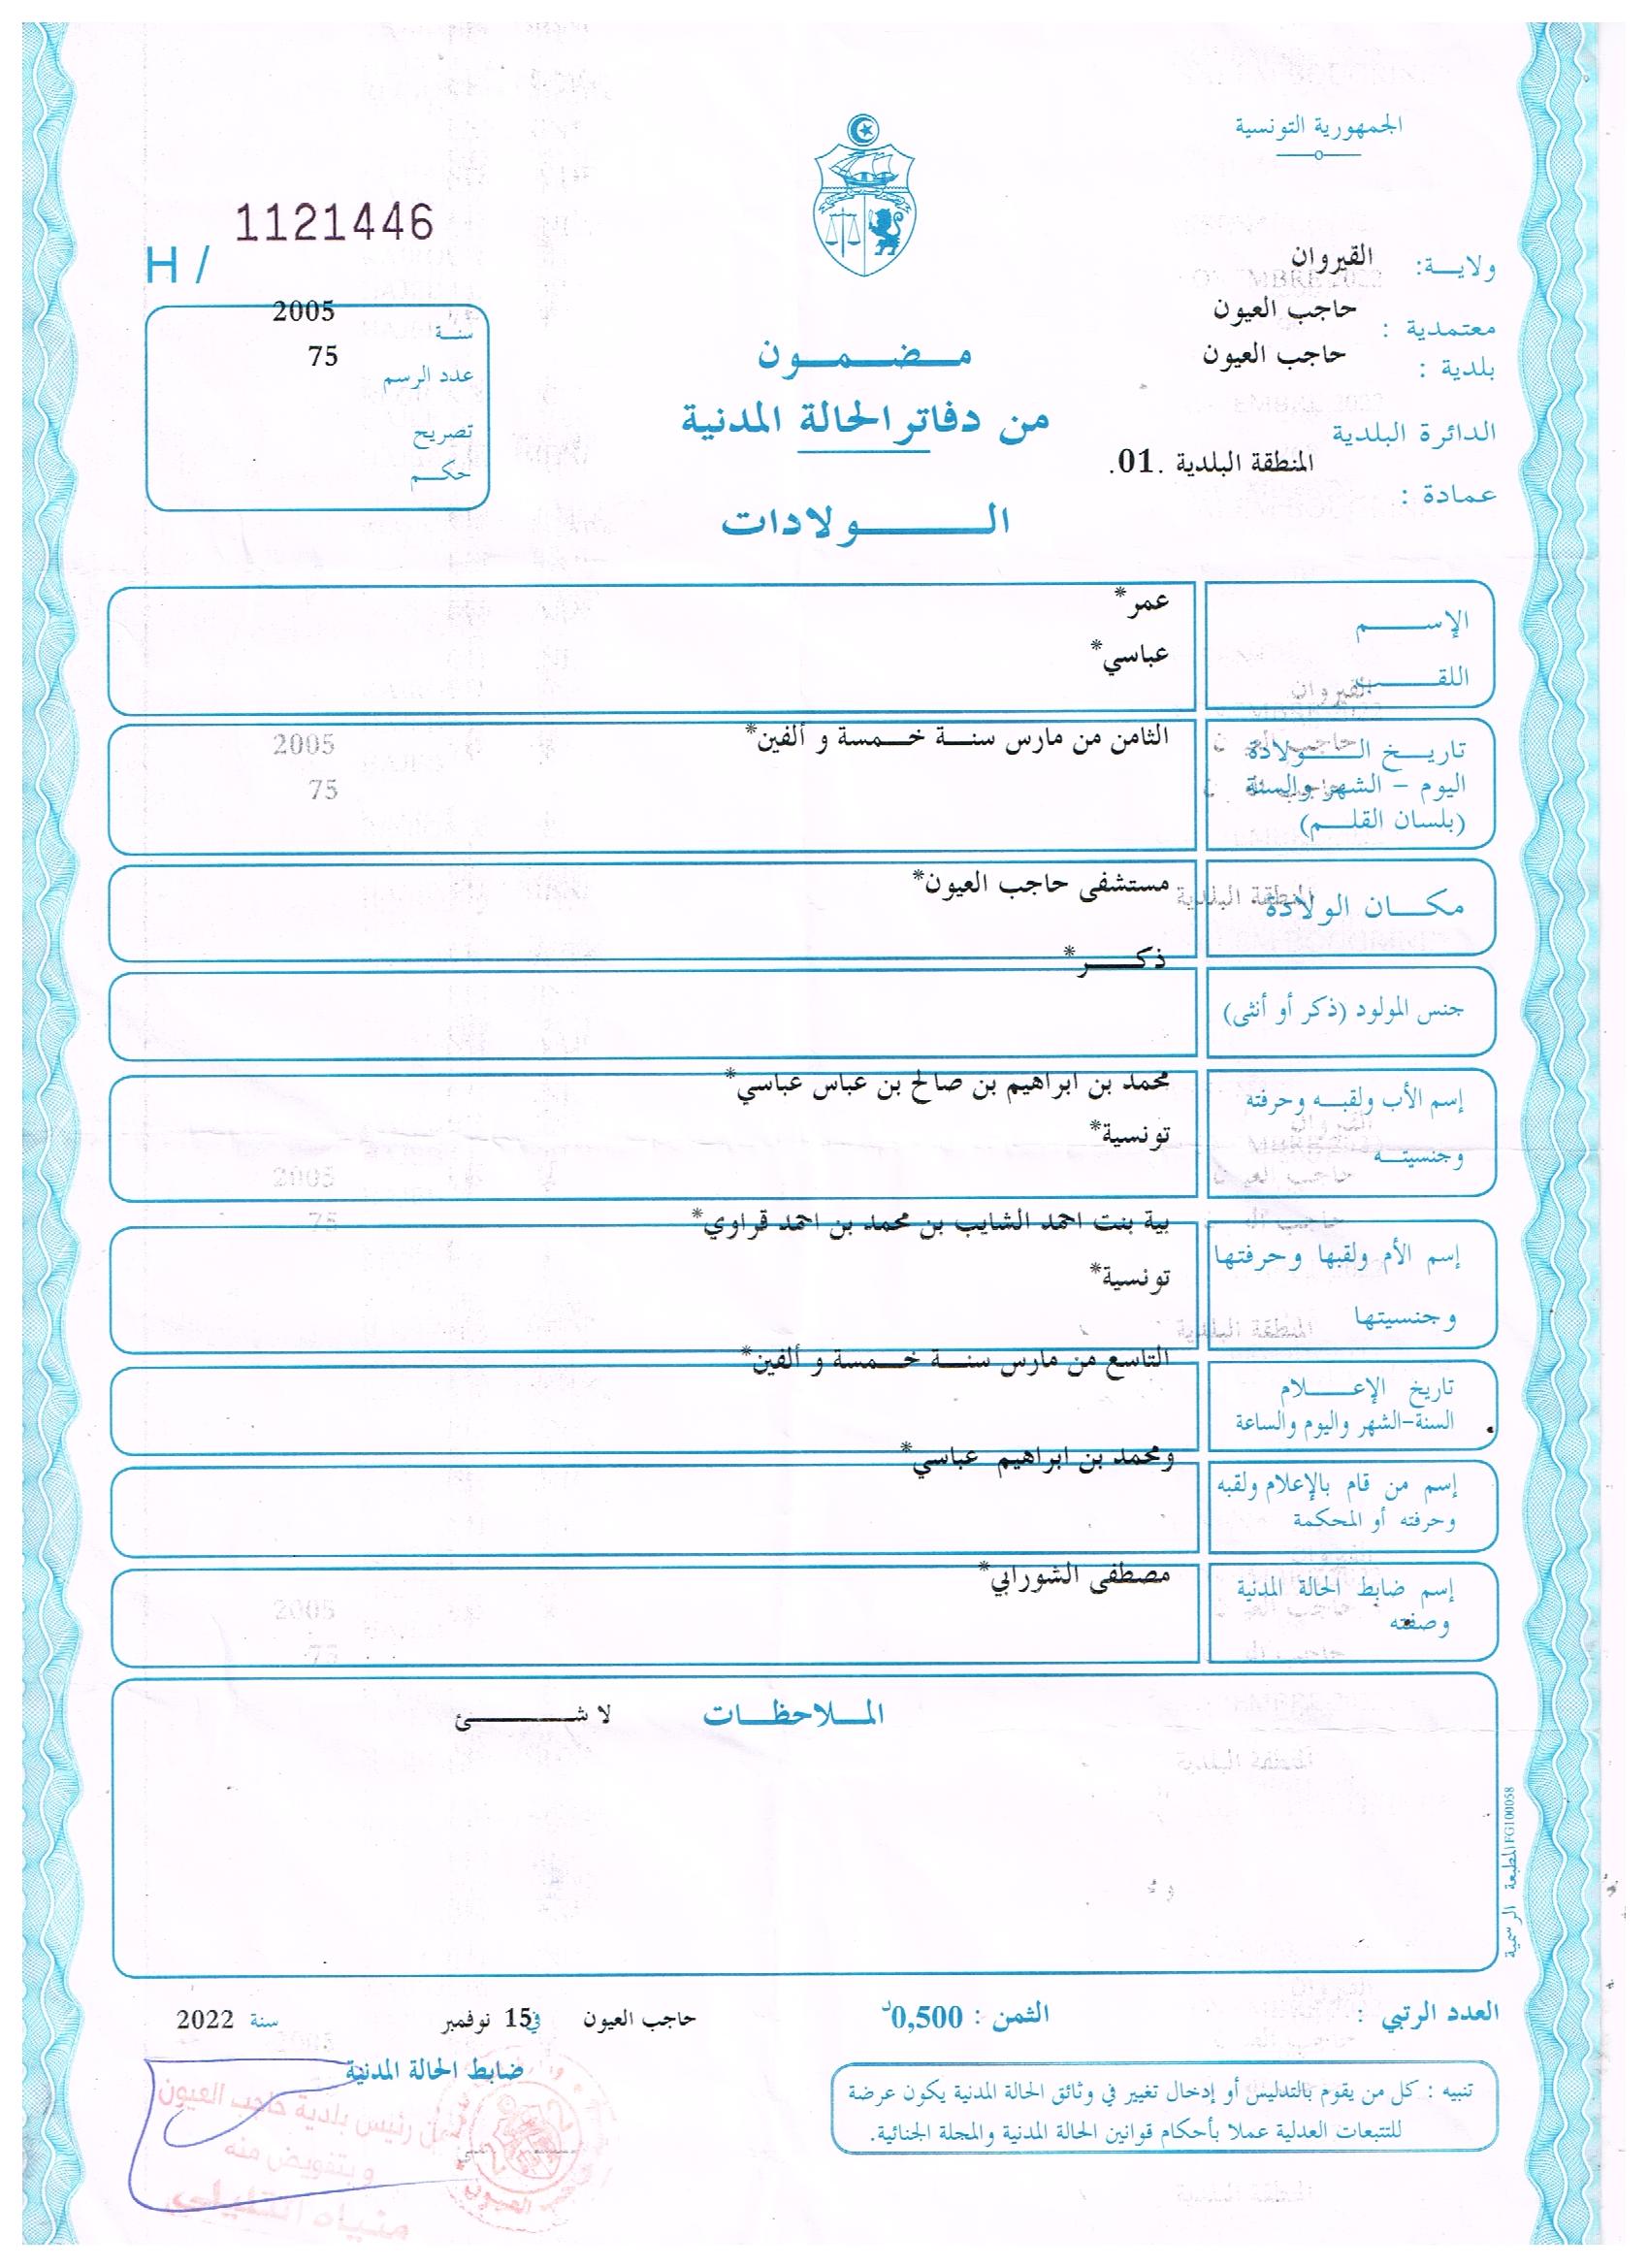 الجمهورية التونسية
ولاية: القيروان
معتمدية : حاجب العيون
بلدية : حاجب العيون
الدائرة البلدية
المنطقة البلدية .01.
عمادة :
H / 1121446
سنة 2005
عدد الرسم 75
تصريح
حكم
مضمون
من دفاتر الحالة المدنية
الولادات
الإسم
عمر*
اللقب
عباسي*
تاريخ الولادة
اليوم - الشهر والسنة
(بلسان القلم)
الثامن من مارس سنة خمسة و ألفين*
مكان الولادة
مستشفى حاجب العيون*
جنس المولود (ذكر أو أنثى)
ذكر*
إسم الأب ولقبه وحرفته
وجنسيته
محمد بن ابراهيم بن صالح بن عباس عباسي*
تونسية*
إسم الأم ولقبها وحرفتها
وجنسيتها
بية بنت احمد الشايب بن محمد بن احمد قراوي*
تونسية*
تاريخ الإعلام
السنة-الشهر واليوم والساعة
التاسع من مارس سنة خمسة و ألفين*
إسم من قام بالإعلام ولقبه
وحرفته أو المحكمة
ومحمد بن ابراهيم عباسي*
إسم ضابط الحالة المدنية
وصفته
مصطفى الشورابي*
الملاحظات لا شئ
المطبعة الرسمية FG100058
العدد الرتبي :
الثمن : 0,500د
حاجب العيون في 15 نوفمبر سنة 2022
ضابط الحالة المدنية
تنبيه : كل من يقوم بالتدليس أو إدخال تغيير في وثائق الحالة المدنية يكون عرضة
للتتبعات العدلية عملا بأحكام قوانين الحالة المدنية والمجلة الجنائية.
رئيس بلدية حاجب العيون
وبتفويض منه